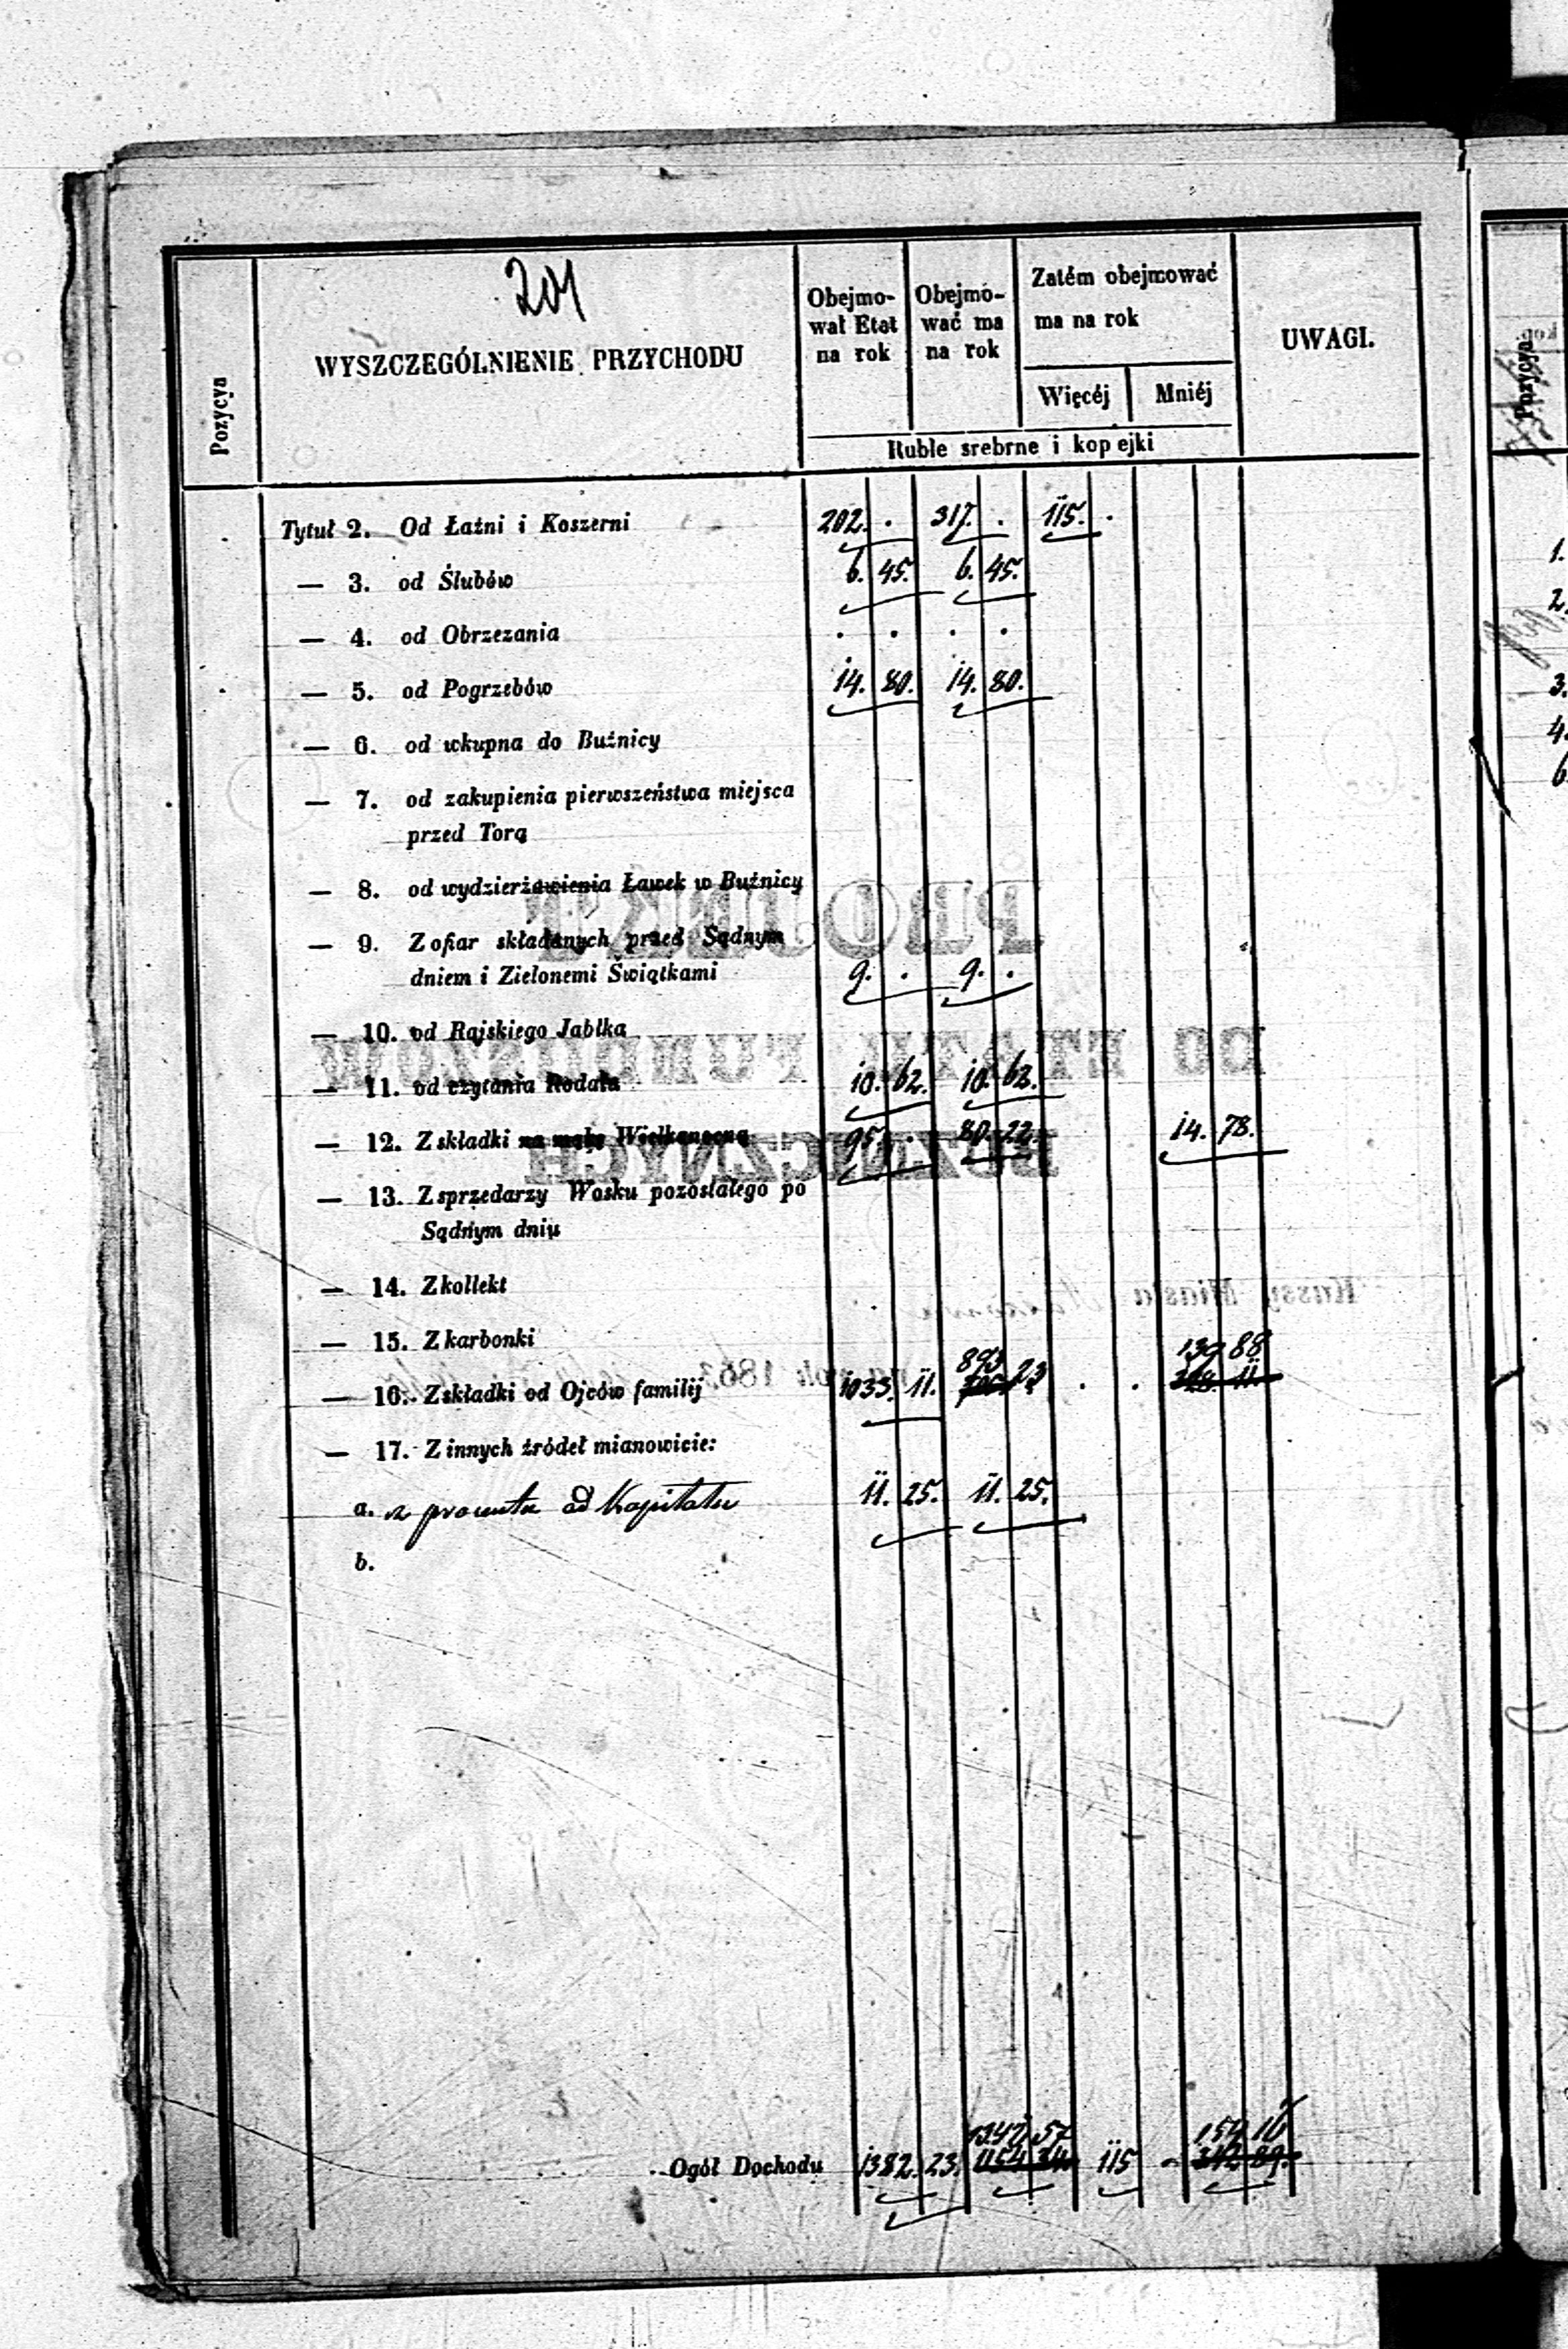 201
Pozycya
WYSZCZEGÓLNIENIE PRZYCHODU
Obejmo-
wał Etat
na rok
Obejmo-
wać ma
na rok
Zatém obejmować
ma na rok
Więcéj Mniéj
UWAGI.
Ruble srebrne i kopejki
Tytuł 2. Od Łaźni i Koszerni 202. . 317. . 115. .
— 3. od Ślubów 6. 45. 6. 45.
— 4. od Obrzezania . . . .
— 5. od Pogrzebów 14. 80. 14. 80.
— 6. od wkupna do Buźnicy
— 7. od zakupienia pierwszeństwa miejsca
przed Torą
— 8. od wydzierżawienia Ławek w Buźnicy
— 9. Z ofiar składanych przed Sądnym
dniem i Zielonemi Świątkami 9. . 9. .
— 10. od Rajskiego Jabłka
— 11. od czytania Rodału 10. 62. 10. 62.
— 12. Z składki na mąkę Wielkanocną 95. . 80. 22. 14. 78.
— 13. Z sprzedarzy Wosku pozostałego po
Sądnym dniu
— 14. Z kollekt
— 15. Z karbonki
139 88
893
— 16. Z składki od Ojców familij 1033. 11. 23 . .
— 17. Z innych źródeł mianowicie:
a. z procentu od Kapitału 11. 25. 11. 25.
b.
1342 57
154 10
Ogół Dochodu 1382. 23. 1154 34 115 - 342 89.